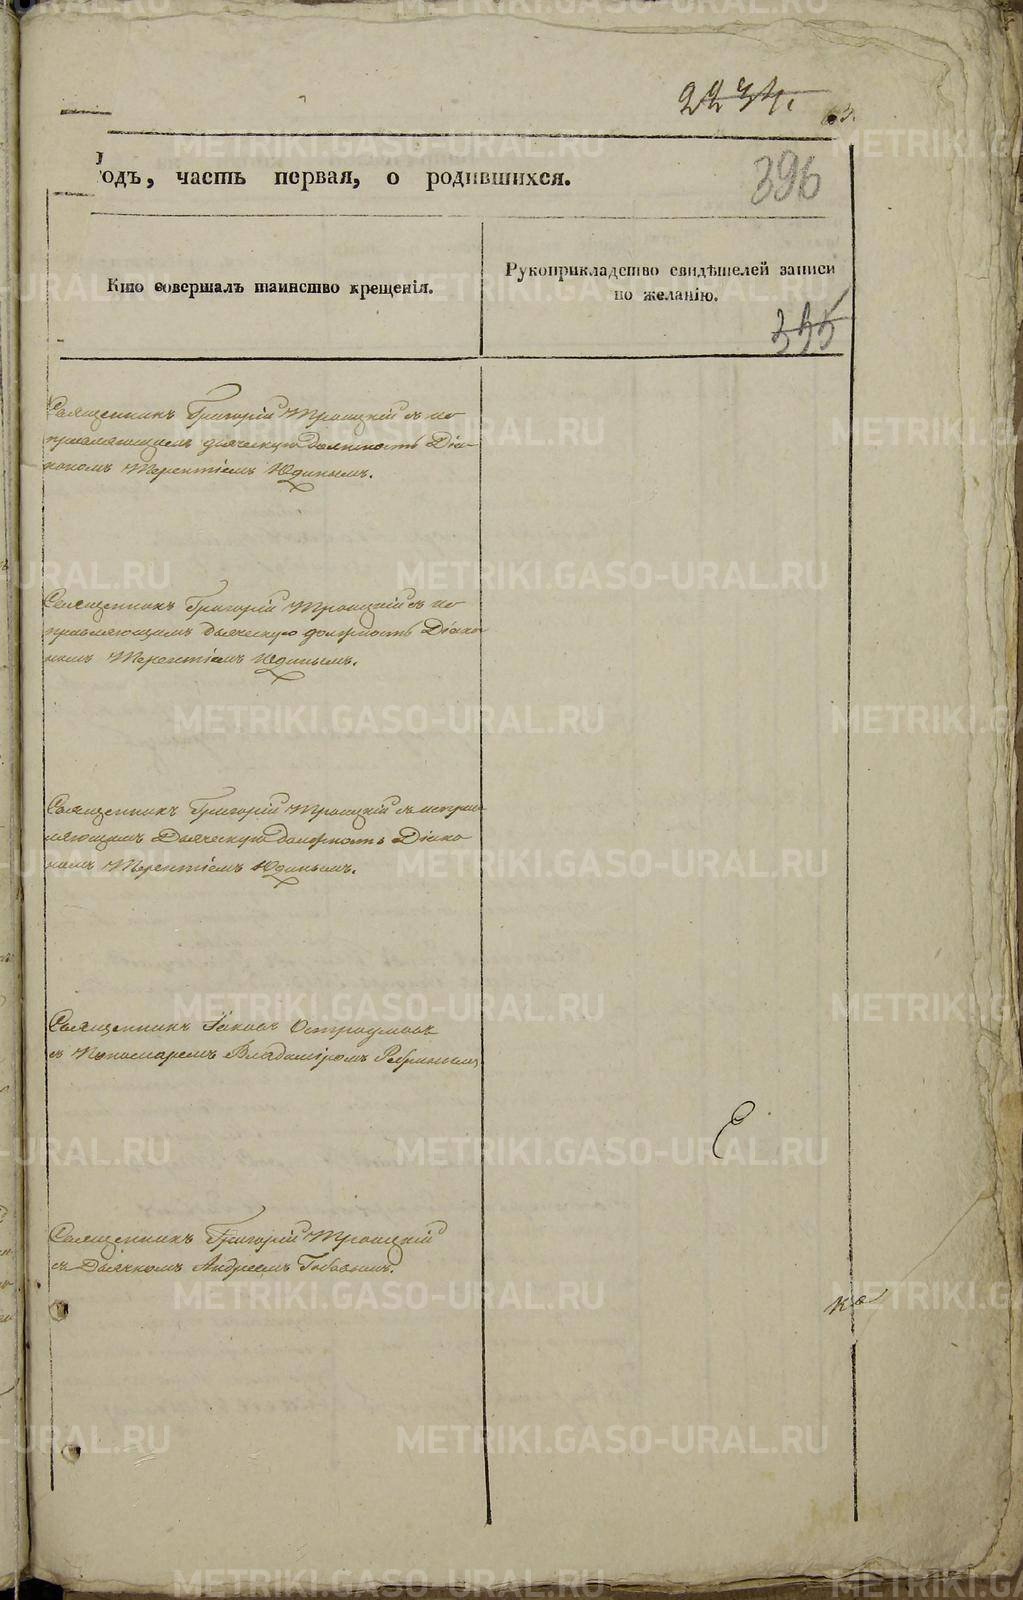 2234.
63.
Годъ, часть первая, о родившихся.
396
Кто совершалъ таинство крещенія.
Рукоприкладство свидѣтелей записи
по желанію.
355
Священникъ Григорій Троицкій съ ис
правляющимъ дьяческую должность Діа
кономъ Терентіемъ Юдинымъ.
Священникъ Григорій Троицкій съ ис
правляющимъ дьяческую должность Діако
номъ Терентіемъ Юдинымъ.
Священникъ Григорій Троицкій съ исправ
ляющимъ Дьяческую должность Діако
номъ Терентіемъ Юдинымъ.
Священникъ Іаковъ Остроумовъ
съ Пономаремъ Владиміромъ
Священникъ Григорій Троицкій
съ Дьячкомъ Андреемъ
METRIKI.GASO-URAL.RU